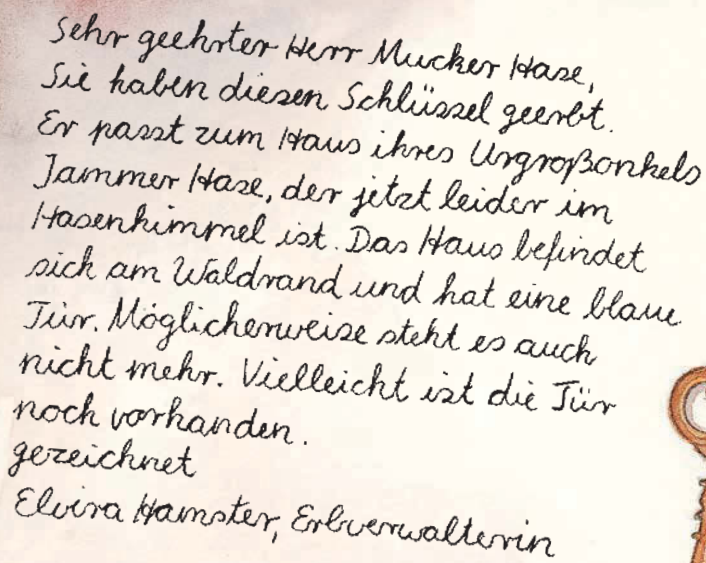 Sehr geehrter Herr Mucker Hase,
Sie haben diesen Schlüssel geerbt.
Er passt zum Haus ihres Urgroßonkels
Jammer Hase, der jetzt leider im
Hasenhimmel ist. Das Haus befindet
sich am Waldrand und hat eine blaue
Tür. Möglicherweise steht es auch
nicht mehr. Vielleicht ist die Tür
noch vorhanden.
gezeichnet
Elvira Hamster, Erbverwalterin